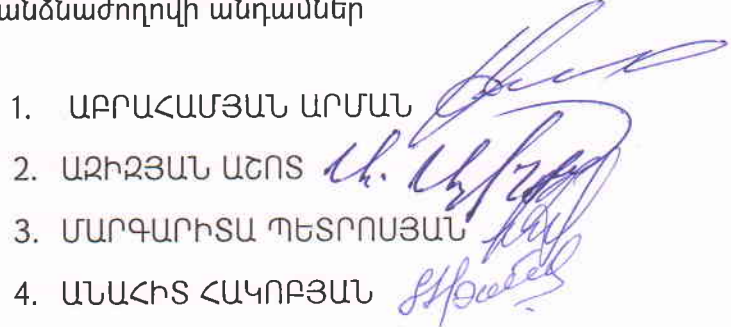 անձնաժողովի անդամներ
1. ԱԲՐԱՀԱՄՅԱՆ ԱՐՄԱՆ
2. ԱԶԻԶՅԱՆ ԱՇՈՏ
3. ՄԱՐԳԱՐԻՏԱ ՊԵՏՐՈՍՅԱՆ
4. ԱՆԱՀԻՏ ՀԱԿՈԲՅԱՆ